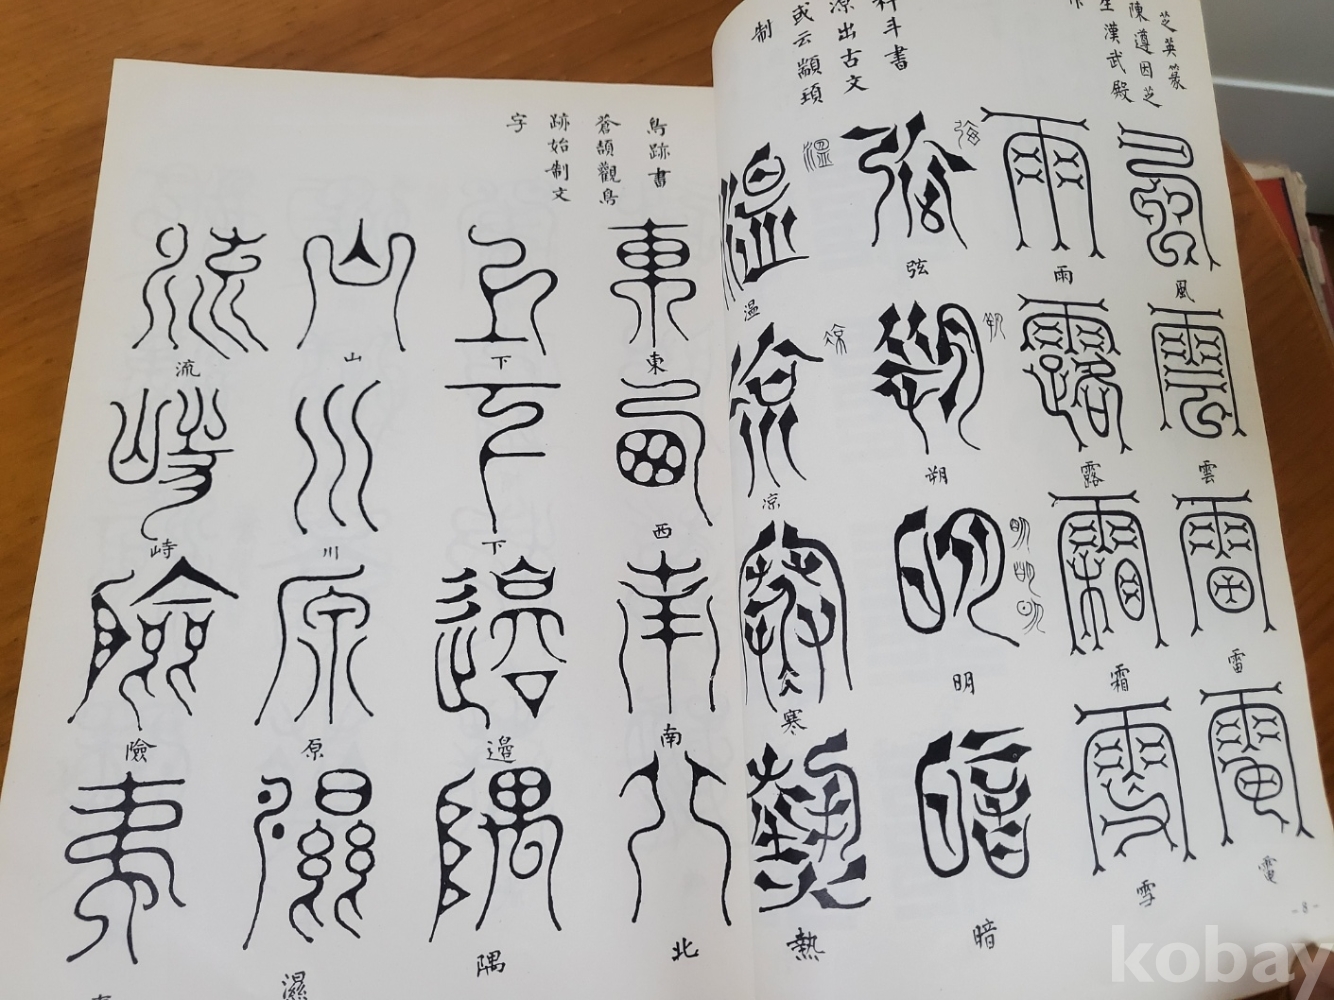 芝英篆
陳遵因芝
生漢武殿
作
科斗書
源出古文
或云顓頊
制
風
雲
雷
電
雨
露
霜
雪
弦
朔
明
暗
温
凉
寒
熱
鳥跡書
蒼頡觀鳥
跡始制文
字
東
西
南
北
下
下
邊
隅
山
川
原
濕
流
峙
險
-8-
kobay